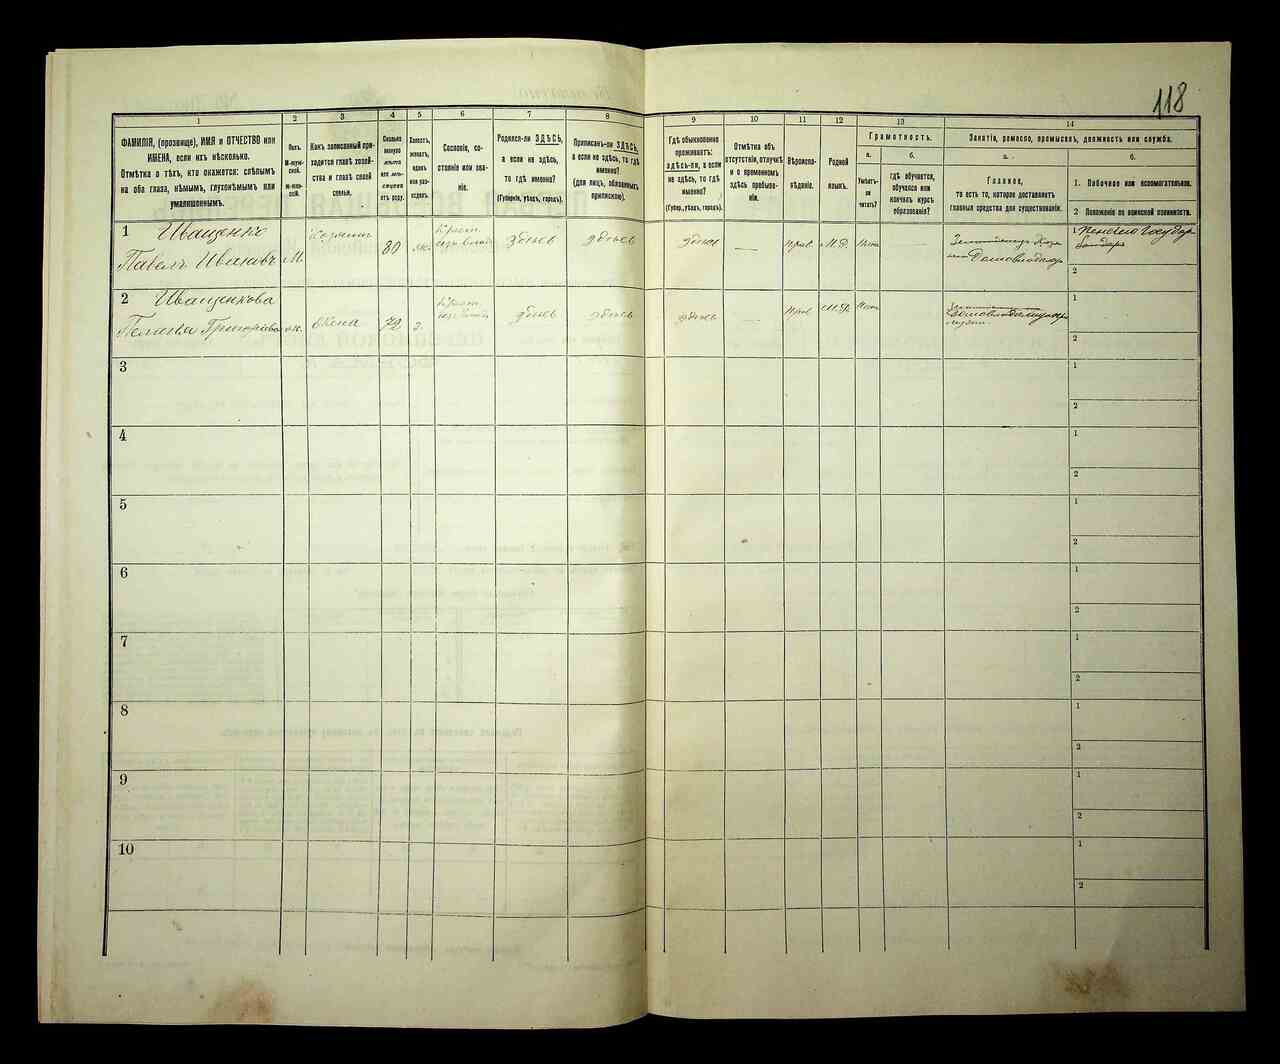 118
1
ФАМИЛІЯ, (прозвище), ИМЯ и ОТЧЕСТВО или
ИМЕНА, если ихъ нѣсколько.
Отмѣтка о тѣхъ, кто окажется: слѣпымъ
на оба глаза, нѣмымъ, глухонѣмымъ или
умалишеннымъ.
2
Полъ.
М-муж-
ской.
Ж-жен-
скій.
3
Какъ записанный при-
ходится главѣ хозяй-
ства и главѣ своей
семьи.
4
Сколько
минуло
лѣтъ
или мѣ-
сяцевъ
отъ роду.
5
Холостъ,
женатъ,
вдовъ
или раз-
веденъ.
6
Сословіе, со-
стояніе или зва-
ніе.
7
Родился-ли ЗДѢСЬ,
а если не здѣсь,
то гдѣ именно?
(Губернія, уѣздъ, городъ).
8
Приписанъ-ли ЗДѢСЬ,
а если не здѣсь, то гдѣ
именно?
(для лицъ, обязанныхъ
припискою).
9
Гдѣ обыкновенно
проживаетъ:
здѣсь-ли, а если
не здѣсь, то гдѣ
именно?
(Губер., уѣздъ, городъ).
10
Отмѣтка объ
отсутствіи, отлучкѣ
и о временномъ
здѣсь пребыва-
ніи.
11
Вѣроиспо-
вѣданіе.
12
Родной
языкъ.
13
Грамотность.
а.
Умѣетъ-
ли
читать?
б.
гдѣ обучается,
обучался или
кончилъ курсъ
образованія?
14
Занятіе, ремесло, промыселъ, должность или служба.
а.
Главное,
то есть то, которое доставляетъ
главныя средства для существованія.
б.
1. Побочное или вспомогательное.
2 Положеніе по воинской повинности.
1 Иващенко
Павелъ Ивановъ М. хозяинъ 80 ж. Крест. здѣсь здѣсь здѣсь — прав. М.Р. нѣтъ —
1
2
2 Иващенкова
Пелагія Григорьева ж. Жена 72 з. Крест. здѣсь здѣсь здѣсь — прав М.Р. нѣтъ
1
2
3
1
2
4
1
2
5
1
2
6
1
2
7
1
2
8
1
2
9
1
2
10
1
2